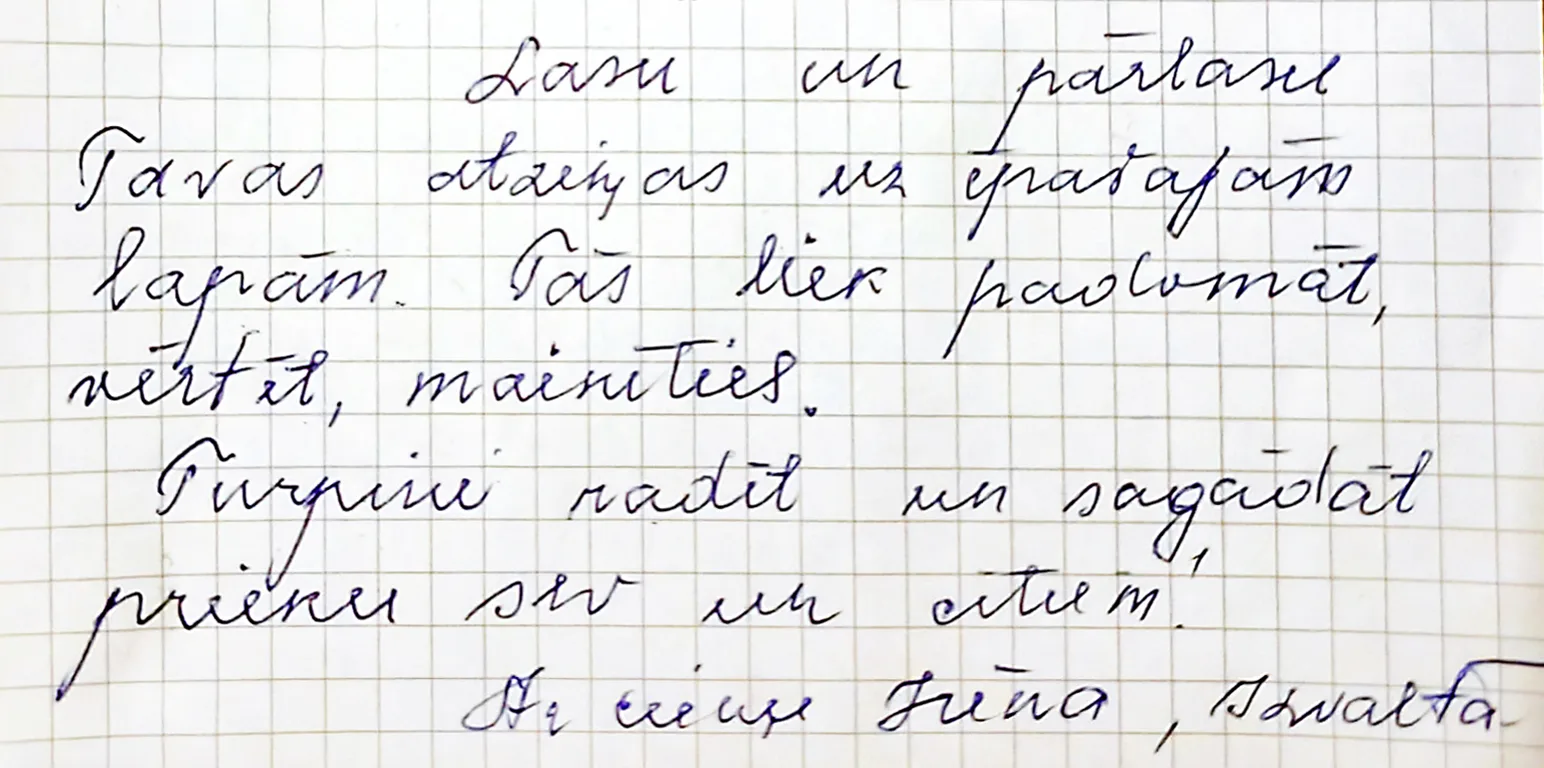 Lasu un pārlasu
Tavas atziņas uz īpašajām
lapām. Tās liek padomāt,
vērtēt, mainīties.
Turpini radīt un sagādāt
prieku sev un citiem!
Ar cieņu Irēna, Izvaltā